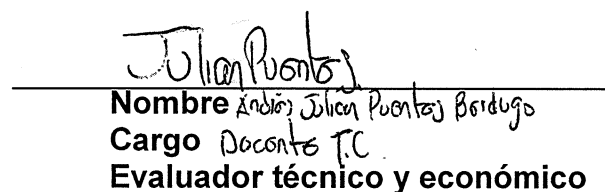 Julian Puentes.
Nombre Andrés Julian Puentes Berdugo
Cargo Docente T.C
Evaluador técnico y económico